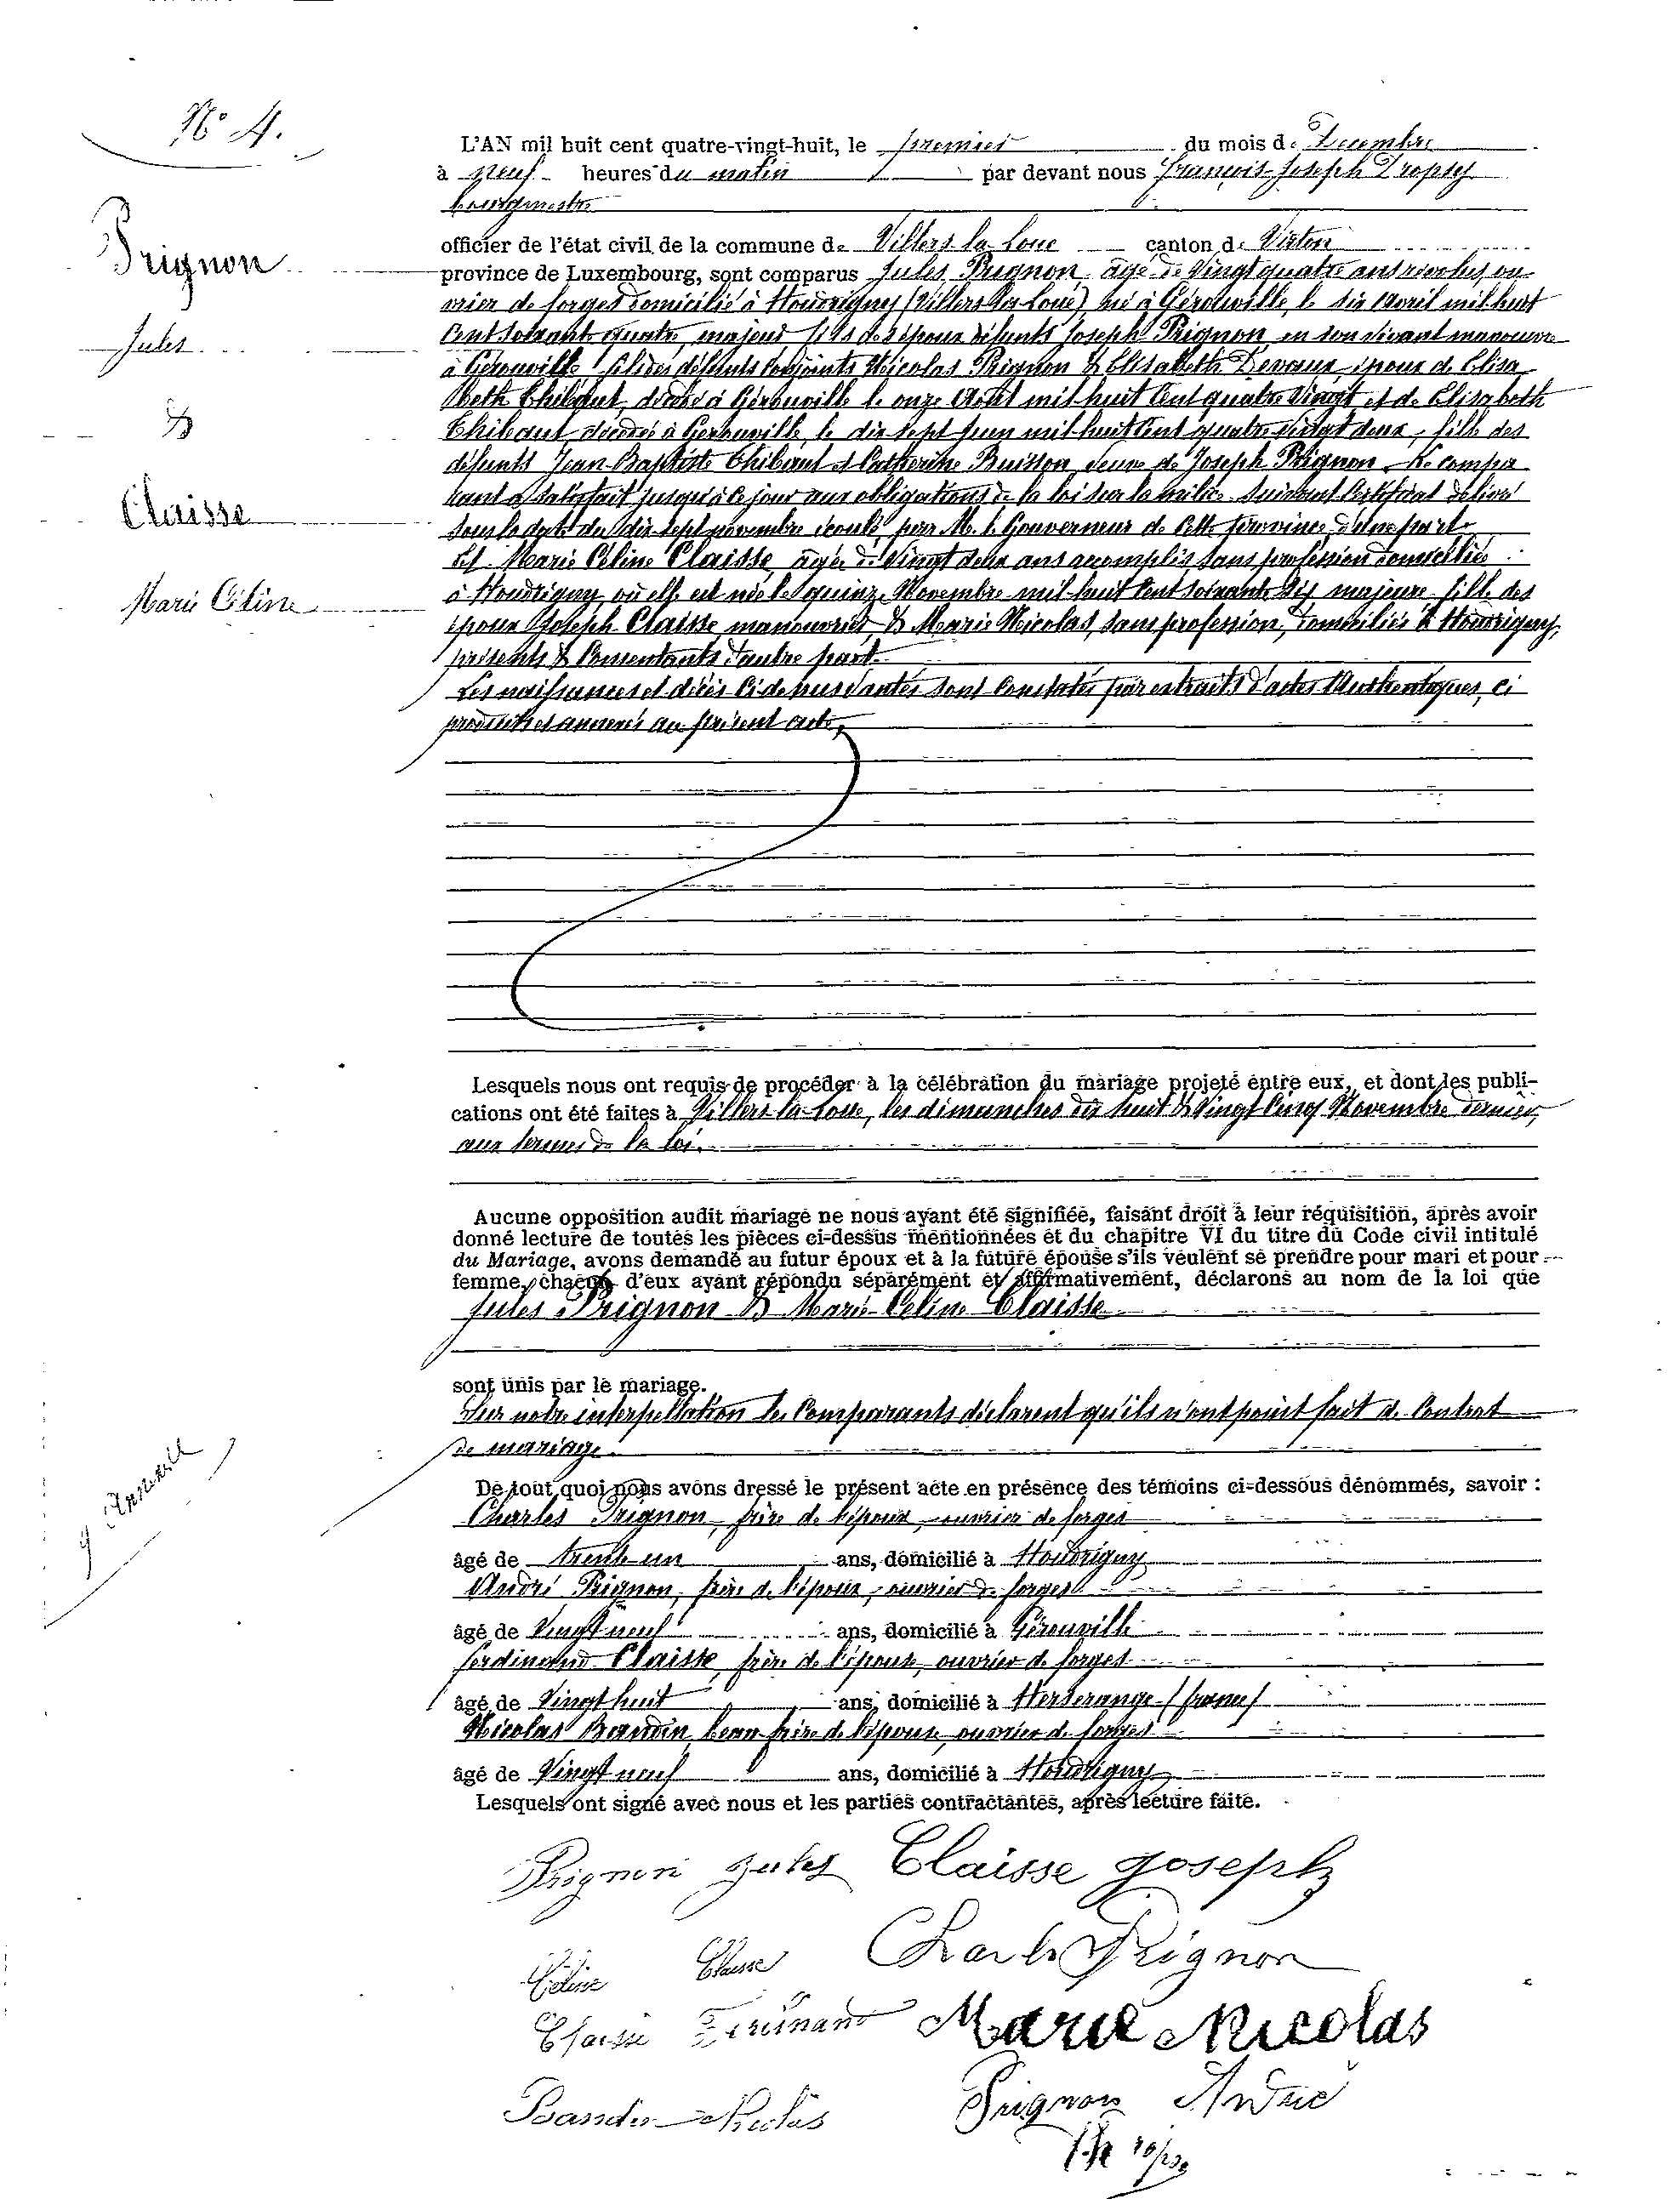 N° 4.
Prignon
Jules
&
Claisse
Marie Céline
L'AN mil huit cent quatre-vingt-huit, le premier du mois de Décembre
à neuf heures du matin par devant nous François-Joseph Dropsy
bourgmestre
officier de l'état civil de la commune de Villers-la-Loue canton de Virton
province de Luxembourg, sont comparus Jules Prignon, âgé de vingt quatre ans révolus, ou-
vrier de forges domicilié à Houdrigny (Villers-la-Loue), né à Gérouville, le six Avril mil huit
cent soixante quatre, majeur fils des époux défunts Joseph Prignon en son vivant manouvre
à Gérouville fils des défunts conjoints Nicolas Prignon & Elisabeth Devaux époux de Elisa-
beth Thibaut, décédé à Gérouville le onze Août mil huit cent quatre vingt et de Elisabeth
Thibaut, décédée à Gérouville, le dix sept Juin mil huit cent quatre vingt deux, fille des
défunts Jean-Baptiste Thibaut et Catherine Buisson, veuve de Joseph Prignon. Le compa-
rant a satisfait jusqu'à ce jour aux obligations de la loi sur la milice suivant certificat délivré
sous la date du dix sept novembre écoulé, par M. le Gouverneur de cette province d'une part.
Et Marie Céline Claisse, agée de vingt deux ans accomplis sans profession domiciliée
à Houdrigny, où elle est née le quinze Novembre mil huit cent soixante six majeure fille des
époux Joseph Claisse, manouvrier & Marie Nicolas, sans profession, domiciliés à Houdrigny,
présents & consentants d'autre part.
Les naissances et décès ci-dessus dantés sont constatés par extraits d'actes authentiques, ci
produits et annexés au présent acte,
Lesquels nous ont requis de procéder à la célébration du mariage projeté entre eux, et dont les publi-
cations ont été faites à Villers-la-Loue, les dimanches dix huit & vingt cinq Novembre dernier,
aux termes de la loi.
Aucune opposition audit mariage ne nous ayant été signifiée, faisant droit à leur réquisition, après avoir
donné lecture de toutes les pièces ci-dessus mentionnées et du chapitre VI du titre du Code civil intitulé
du Mariage, avons demandé au futur époux et à la future épouse s'ils veulent se prendre pour mari et pour
femme, chacun d'eux ayant répondu séparément et affirmativement, déclarons au nom de la loi que
Jules Prignon & Marie Céline Claisse
sont unis par le mariage.
Sur notre interpellation les comparants déclarent qu'ils n'ont point fait de contrat
de mariage.
De tout quoi nous avons dressé le présent acte en présence des témoins ci-dessous dénommés, savoir :
Charles Prignon, frère de l'époux, ouvrier de forges
âgé de trente un ans, domicilié à Houdrigny
André Prignon, frère de l'époux, ouvrier de forges
âgé de vingt neuf ans, domicilié à Gérouville
Ferdinand Claisse, frère de l'épouse, ouvrier de forges
âgé de vingt huit ans, domicilié à Herserange (france)
Nicolas Baudin, beau-frère de l'épouse, ouvrier de forges
âgé de vingt neuf ans, domicilié à Houdrigny
Lesquels ont signé avec nous et les parties contractantes, après lecture faite.
Prignon jules Claisse joseph
Céline Claisse Charles Prignon
Claisse Ferdinand Marie Nicolas
Nicolas Prignon André